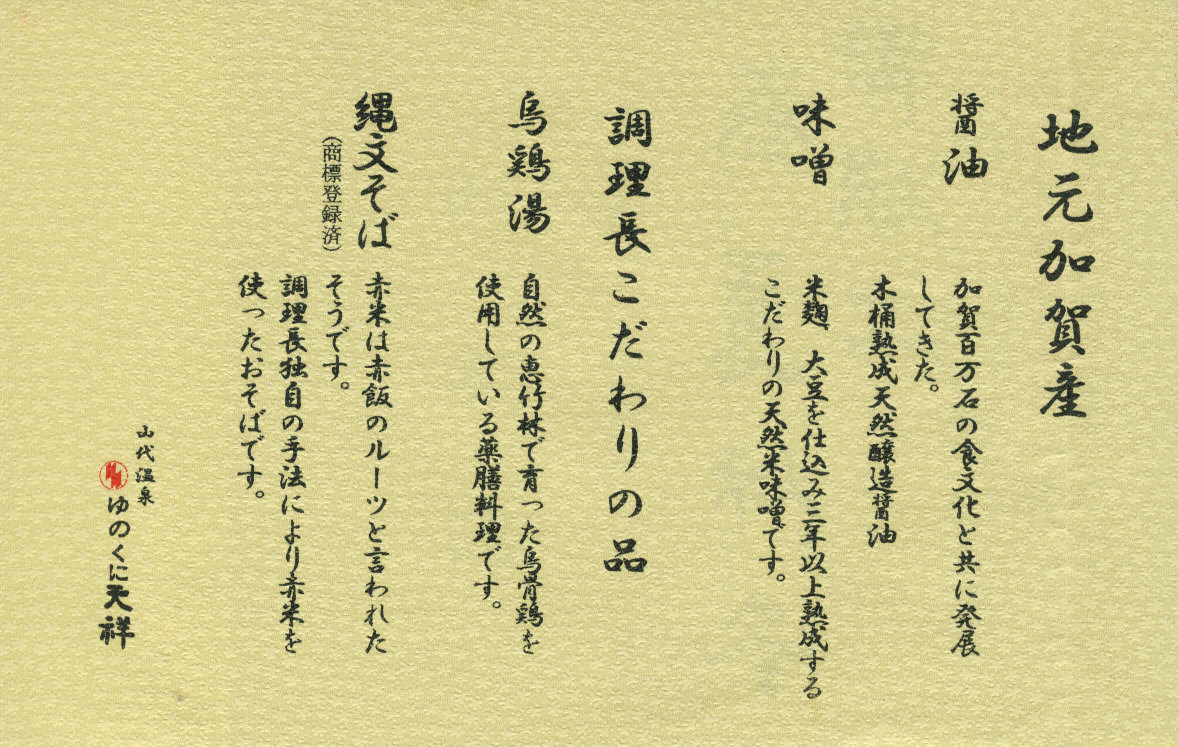 地元加賀産
醤油
加賀百万石の食文化と共に発展
してきた。
木桶熟成天然醸造醤油
味噌
米麹、大豆を仕込み三年以上熟成する
こだわりの天然米味噌です。
調理長こだわりの品
烏鶏湯
自然の恵竹林で育った烏骨鶏を
使用している薬膳料理です。
縄文そば
(商標登録済)
赤米は赤飯のルーツと言われた
そうです。
調理長独自の手法により赤米を
使ったおそばです。
山代温泉
ゆのくに天祥